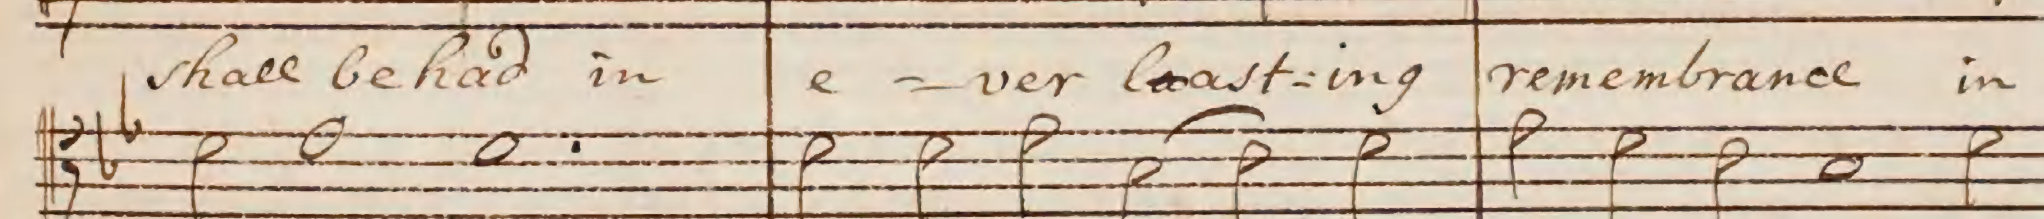 shall be had in e - ver laast=ing remembrance in